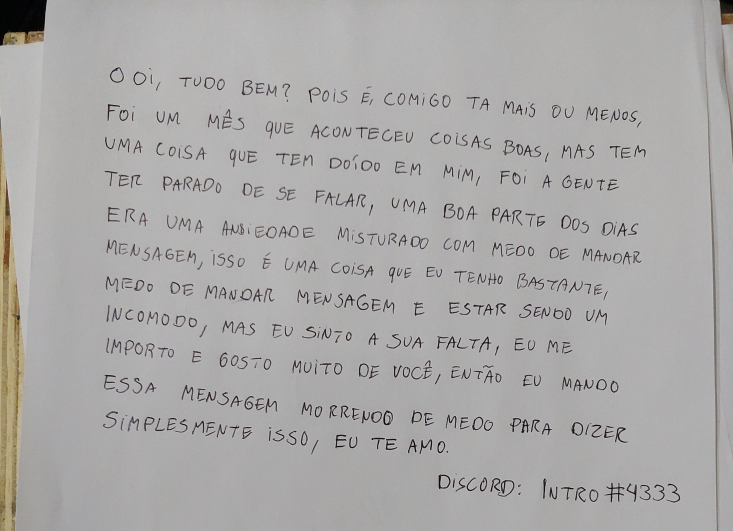 O Oi, TUDO BEM? POIS É, COMIGO TA MAIS OU MENOS,
FOI UM MÊS QUE ACONTECEU COISAS BOAS, MAS TEM
UMA COISA QUE TEM DOÍDO EM MIM, FOI A GENTE
TER PARADO DE SE FALAR, UMA BOA PARTE DOS DIAS
ERA UMA ANSIEDADE MISTURADO COM MEDO DE MANDAR
MENSAGEM, ISSO É UMA COISA QUE EU TENHO BASTANTE,
MEDO DE MANDAR MENSAGEM E ESTAR SENDO UM
INCOMODO, MAS EU SINTO A SUA FALTA, EU ME
IMPORTO E GOSTO MUITO DE VOCÊ, ENTÃO EU MANDO
ESSA MENSAGEM MORRENDO DE MEDO PARA DIZER
SIMPLESMENTE ISSO, EU TE AMO.
DISCORD: INTRO#4333